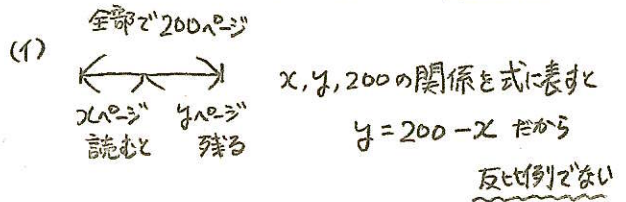 全部で200ページ
(イ)
xページ 読むと
yページ 残る
x, y, 200の関係を式に表すと
y = 200 - x だから
反比例でない